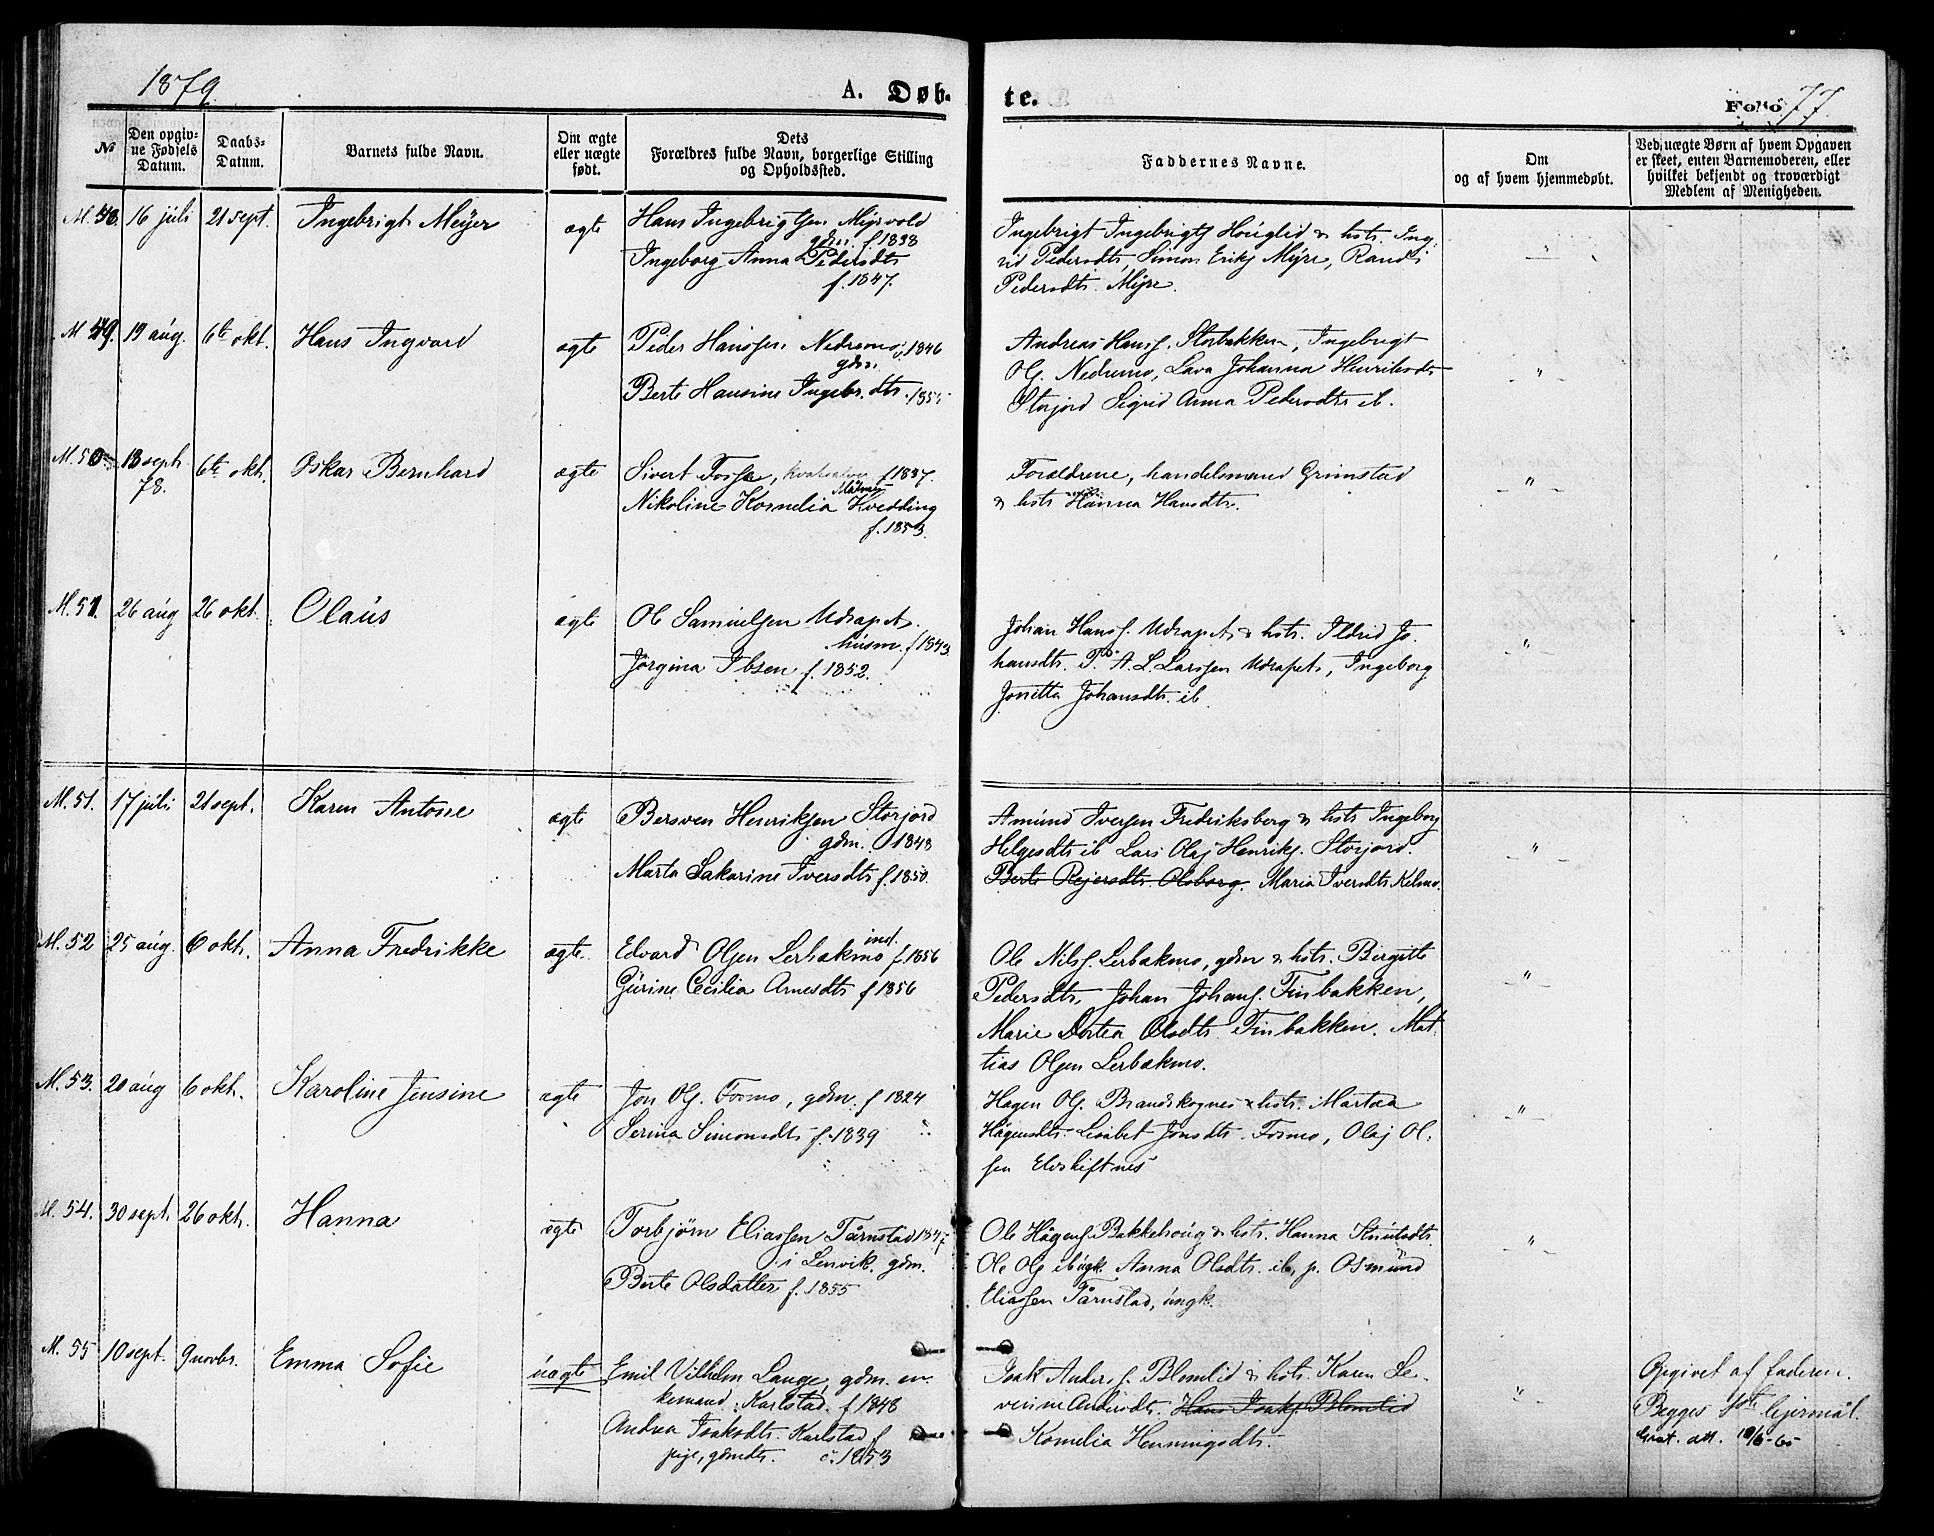 1879.
A. Døb-
te.
Folio 77.
№
Den opgiv-
ne Fødsels
Datum.
Daabs-
Datum.
Barnets fulde Navn.
Om ægte
eller uægte
født.
Dets
Forældres fulde Navn, borgerlige Stilling
og Opholdssted.
Faddernes Navne.
Om
og af hvem hjemmedøbt.
Ved uægte Børn af hvem Opgaven
er skeet, enten Barnemoderen, eller
hvilket bekjendt og troværdigt
Medlem af Menigheden.
M. 48. 16 juli 21 sept. Ingebrigt Meÿer ægte
Hans Ingebrigtsen Myrvold
gdm. f 1838
Ingeborg Anna Pedersdtr
f. 1847.
Ingebrigt Ingebrigts Houglid & hstr. Ing-
rid Pedersdtr, Simon Eriks Myre, Randi
Pedersdtr. Myre.
"
M 49. 19 aug. 6te okt. Hans Ingvard ægte
Peder Hansen Nedremo 1846
gdm.
Berte Hansine Ingebr.dtr. 1855
Andreas Hans. Storbakken, Ingebrigt
Ols. Nedremo, Lava Johanna Henriksdtr
Storjord Sigrid Anna Pedersdtr ib.
"
M. 50 18 sept. 78. 6te okt. Oskar Bernhard ægte
Sivert Fosse, f 1837.
Nikoline Kornelia Kvedding
f. 1853.
Forældrene, handelsmand Grimstad
& hstr Hanna Hansdtr.
"
M. 51. 26 aug 26 okt. Olaus ægte
Ole Samuelsen Mdrapet.
husm. f 1843.
Jørgina Ibsen f. 1852.
Johan Hans. Mdrapet & hstr. Ildrid Jo-
hansdtr. P. A. L. Larssen Mdrapet, Ingeborg
Jonetta Johansdtr. ib.
"
M. 51. 17 juli 21 sept. Karen Antone ægte
Bersven Henriksen Storjord
gdm. 1848
Marta Sakarine Iversdtr f. 1850.
Amund Iversen Fredriksberg & hstr Ingeborg
Helgesdtr ib Lars Olaj Henriks. Storjord.
Berte Rejersdtr. Olsborg. Maria Iversdtr Kelmo.
"
M. 52 25 aug. 6 okt. Anna Fredrikke ægte.
Edvard Olsen Lerbakmo ind. f 1856
Gurine Cecilia Arnesdtr f 1856
Ole Nils. Lerbakmo, gdm & hstr. Birgitte
Pedersdtr, Johan Johans. Finbakken,
Marie Dortea Olsdtr. Finbakken. Mat-
tias Olsen Lerbakmo.
"
M. 53. 20 aug 6 okt. Karoline Jensine ægte
Jon Ols. Fosmo, gdm. f 1824
Serina Simonsdtr f. 1839
Hagen Ols. Brandskognes & hstr. Martea
Hågensdtr. Lisabet Jonsdtr. Fosmo, Olaj Ol-
sen Elvskiftnes
"
M. 54. 30 sept. 26 okt. Hanna ægte
Torbjørn Eliassen Tårnstad 1847
i Lenvik. gdm.
Berte Olsdatter f. 1855
Ole Hågens. Bakkehoug & hstr. Hanna Knutsdtr.
Ole Ols ib ugk. Anna Olsdtr. ib, p. Osmund
Eliassen Tårnstad, ungk.
"
M. 55 10 sept. 9 novbr. Emma Sofie uægte
Emil Vilhelm Lange, gdm. en-
kemand Karlstad f 1848
Andrea Isaksdtr. Karlstad f
pige, gdmdtr. 1853
Isak Anders. Blomlid & hstr. Karen Se-
verine Andersdtr. Hans Isaks. Blomlid
Kornelia Henningsdtr.
"
Opgivet af faderen.
Begges 1ste lejermål.
att. 10/6-65